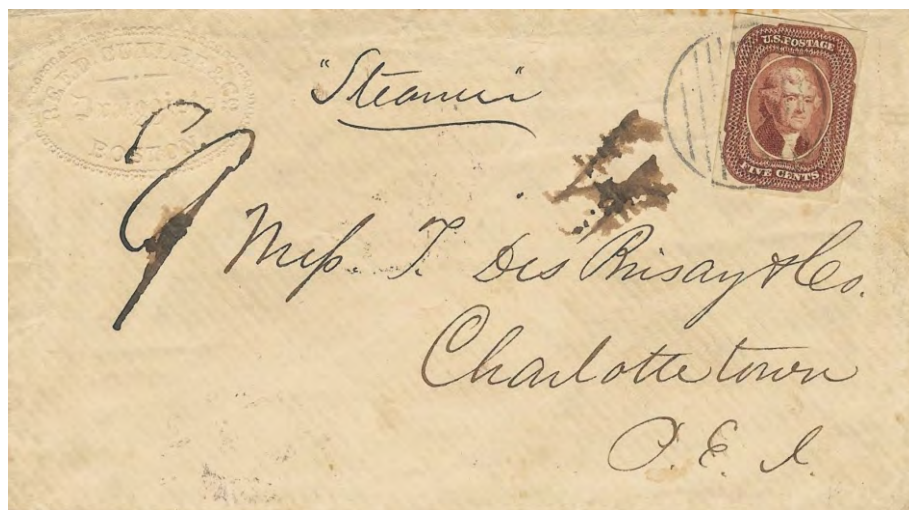 CUTLER & Co
BOSTON
"Steamer"
U.S. POSTAGE
FIVE CENTS
9
Mess. T. Des Brisay & Co.
Charlottetown
P. E. I.